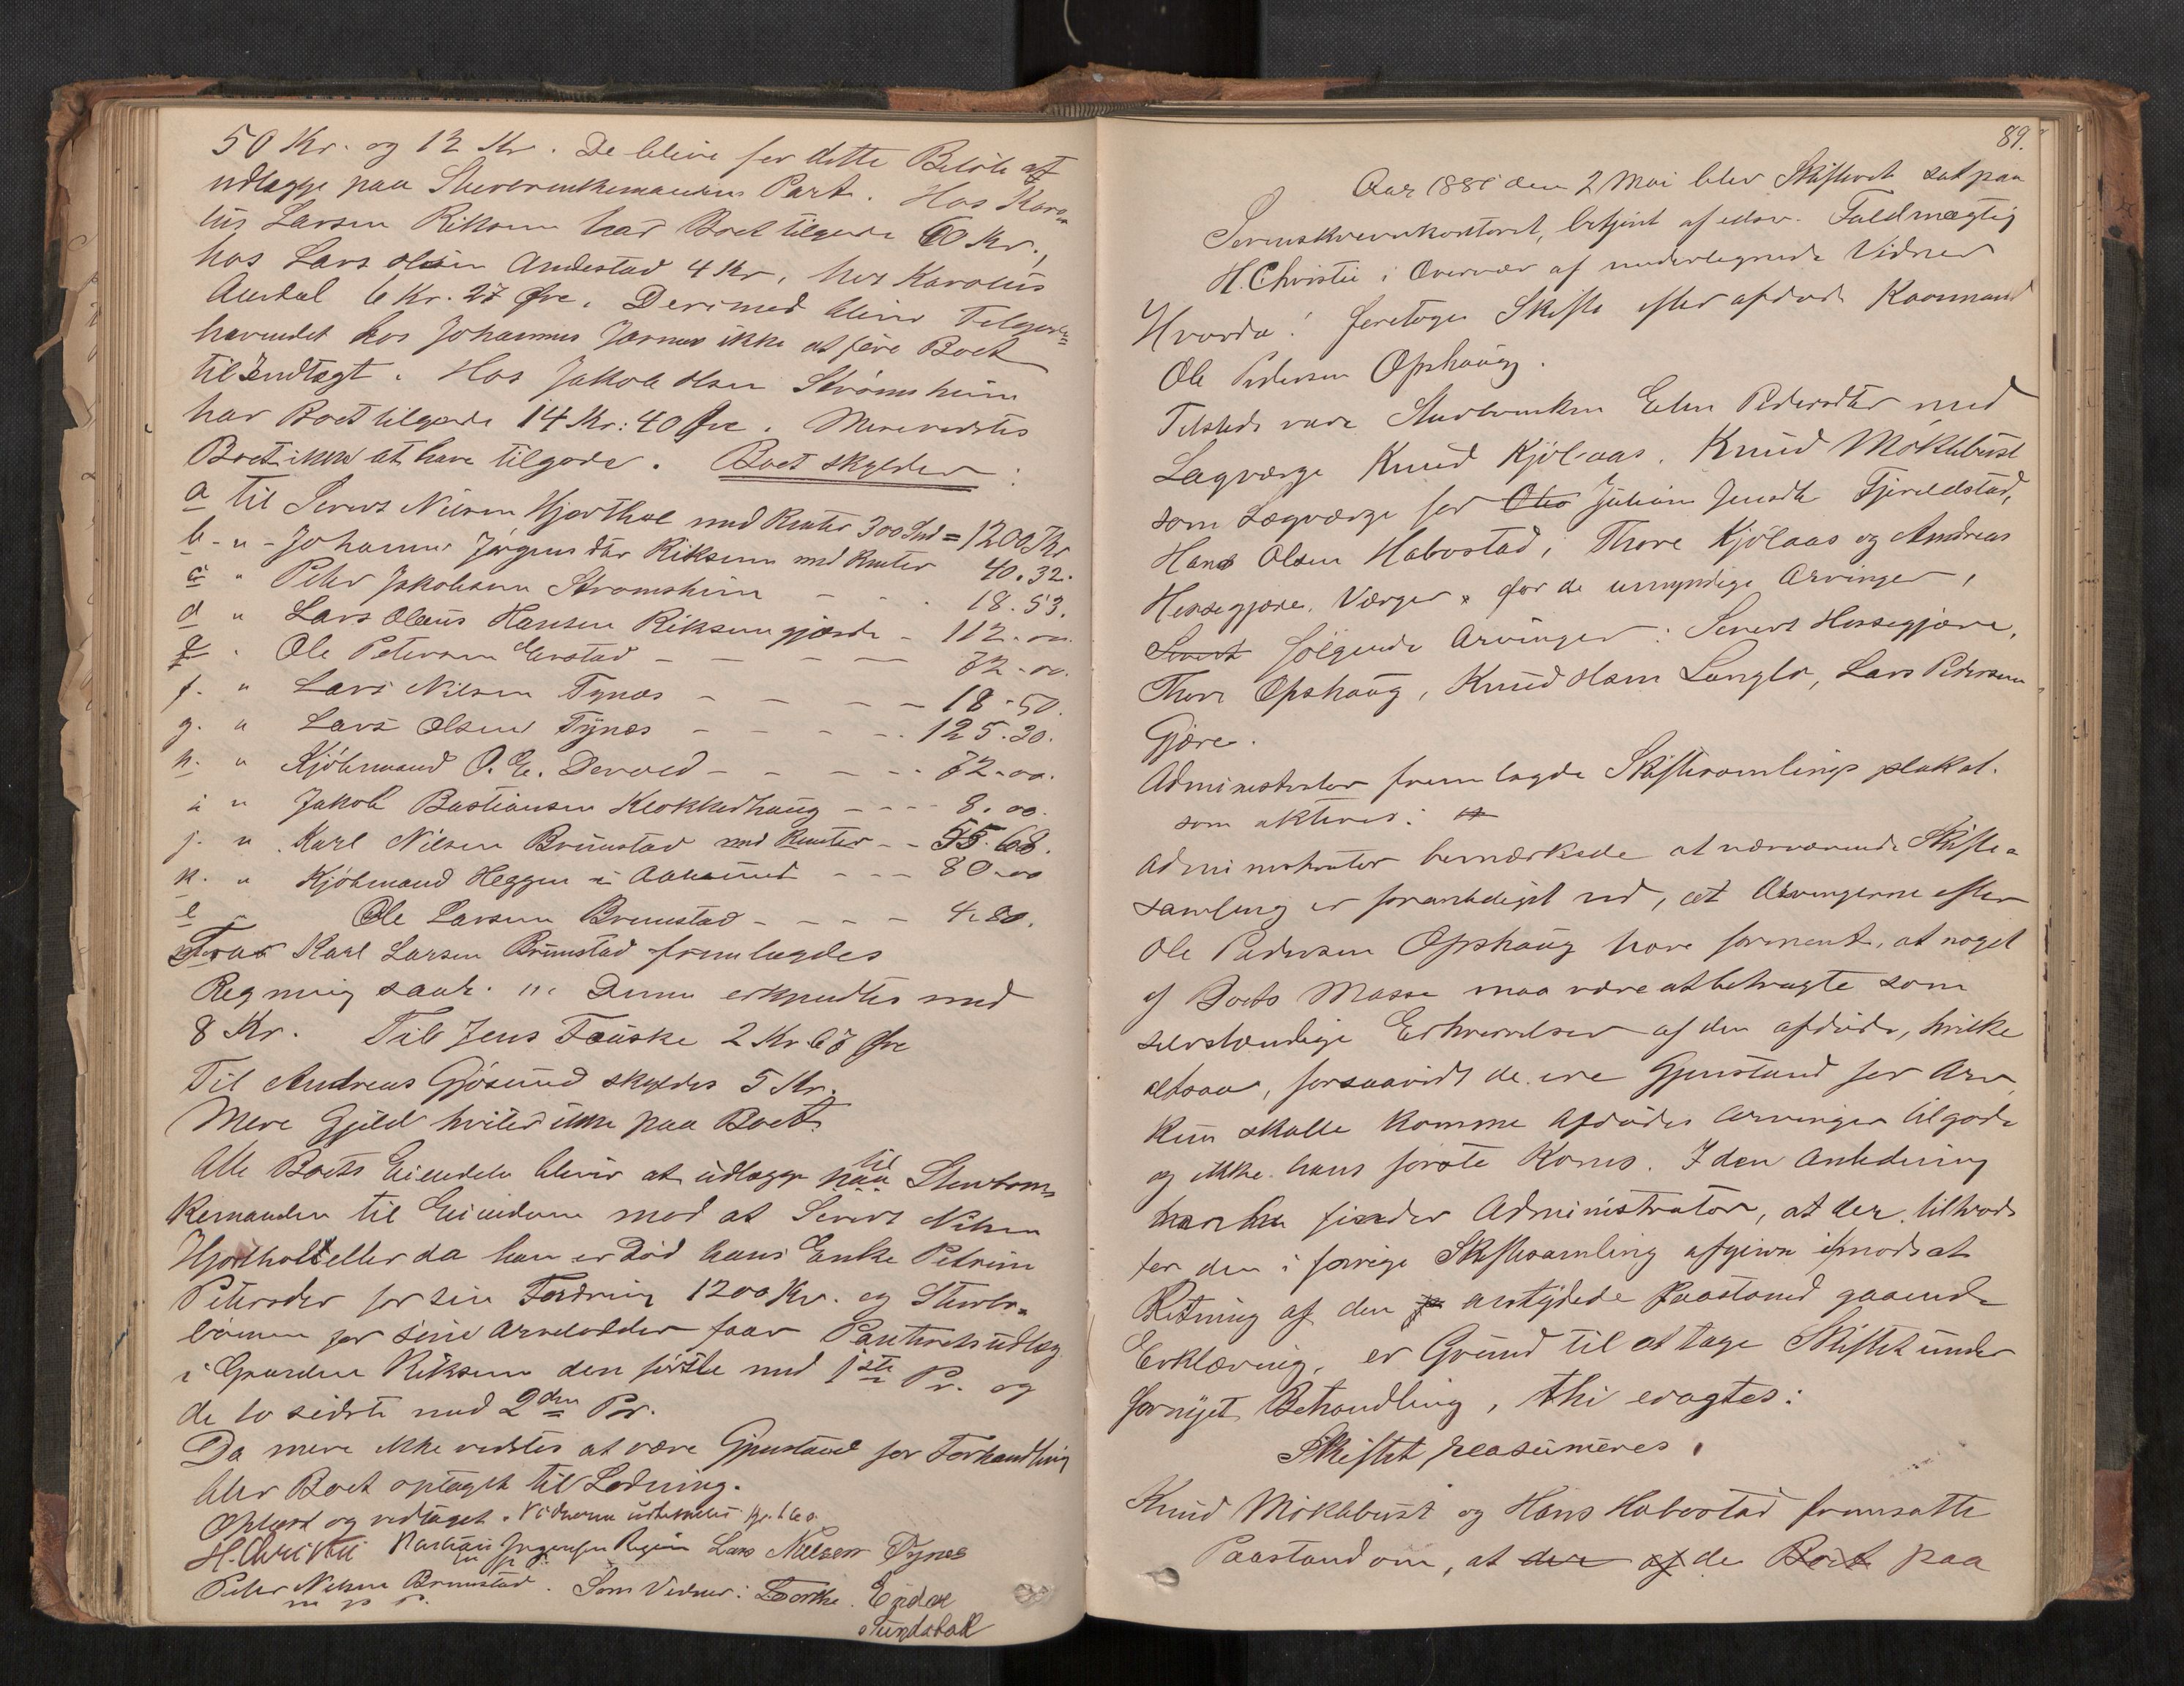 50 Kr. og 12 Kr. De blive for dette Beløb at
udlægge paa Sterbenkemandens Part. Hos Karo=
lus Larsen Riksem har Boet tilgode 60 Kr.,
hos Lars Olsen Andestad 4 Kr., hos Karolus
Aurdal 6 Kr. 27 Øre. Derimod bliver Tilgode=
havendet hos Johannes ikke at føre Boet
til Indtægt. Hos Jakob Olsen Strømsheim
har Boet tilgode 14 Kr: 40 Øre. Mere vedstes
Boet ikke at have tilgode. Boet skylder:
a til Sivert Nilsen Hjorthol med Renter 300 Spd = 1200 Kr
b - " - Johanne Jørgensdtr Riksem med Renter 40.32.
c " Peter Jakobsen Strømsheim - - - 18.53.
d " Lars Olaus Hansen Riksemgjærde - 112.00.
e " Ole Petersen Erstad - - - - 72-00.
f. " Lars Nilsen Tynes - - - - 18-50.
g. " Lars Olsen Tynes - - - - 125.20.
h. " Kjøbmand O. E. Devold - - - - 72-00.
i " Jakob Bastiansen Klokkerhaug - - - 8.00.
j. " Karl Nilsen Brunstad med Renter - - 55.68.
k. " Kjøbmand Heggen i Aalesund - - - 80-00
l " Ole Larsen Brunstad - - - - 4.80.
Fra Karl Larsen Brunstad fremlagdes
Regning saal. ". Denne erkjendtes med
8 Kr. Til Jens Fauske 2 Kr. 67 Øre
Til Andreas Gjøsund skyldes 5 Kr.
Mere Gjeld hviler ikke paa Boet.
Alle Boets Eiendele bliver at udlægge paa til Sterben=
kemanden til Eiendom mod at Sivert Nilsen
Hjorthol eller da han er død hans Enke Petrine
Petersdtr for sin Fordring 1200 Kr. og Sterbo=
børnene for sine Arvelodder faar Panteretsudlæg
i Gaarden Riksem den første med 1ste Pr. og
de to sidste med 2den Pr.
Da mere ikke vedstes at være Gjenstand for Forhandling
blev Boet optaget til Lodning.
Oplæst og vedtaget. Vidnerne
H. Christie Lars Nielsen Tynes
Peter Nilsen Brunstad. Som Vidner: Endre
m p P. Sundsbak
89.
Aar 1881 den 2 Mai blev Skifteret sat paa
Sorenskriverkontoret, betjent af edsv. Fuldmægtig
H. Christie i Overvær af undertegnede Vidner
Hvorda! foretoges Skifte efter afdøde Kaarmand
Ole Pedersen Opshaug.
Tilstede vare Sterbenken Elen Pedersdtr med
Lagværge Knud Kjølaas. Knud Møklebust
som Lagværge for Oles Juliane Jensdtr Fjeldstad,
Hans Olsen Habostad, Thore Kjølaas og Andreas
Hessegjære. Værger for de umyndige Arvinger,
Sivert følgende Arvinger: Sivert Hessegjære,
Thore Opshaug, Knud Olsen Langlo, Lars Pedersen
Gjære.
Administrator fremlagde Skiftesamlings plakat.
som akteres: "
Administrator bemærkede at nærværende Skifte=
samling er foranlediget ved, at Arvingerne efter
Ole Pedersen Opshaug have forment, at noget
af Boets Masse maa være at betragte som
selvstændige Erhvervelser af den afdøde, hvilke
altsaa, forsaavidt de ere Gjenstand for Arv,
kun skulle komme Afdødes Arvinger tilgode
og ikke hans første Kones. I den Anledning
finder Administrator, at der, tiltrods
for den i forrige Skiftesamling afgivne imod at
Retning af den antydede Paastand gaaende
Erklæring, er Grund til at tage Skiftet under
fornyet Behandling, thi eragtes:
Skiftet reasumeres.
Knud Møklebust og Hans Habostad fremsatte
Paastand om, at der af de Boet paa